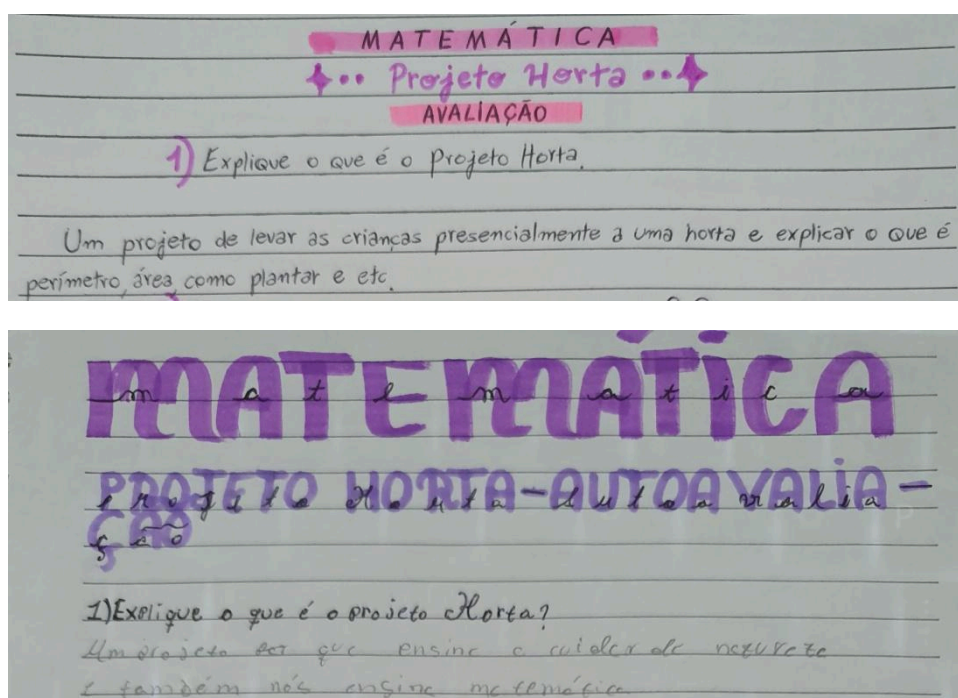 MATEMÁTICA
Projeto Horta
AVALIAÇÃO
1) Explique o que é o Projeto Horta.
Um projeto de levar as crianças presencialmente a uma horta e explicar o que é
perímetro, área, como plantar e etc.
MATEMÁTICA
PROJETO HORTA-AUTOAVALIA-
ÇÃO
1) Explique o que é o projeto Horta?
Um projeto que ensina a cuidar da natureza
E também nós ensina matemática